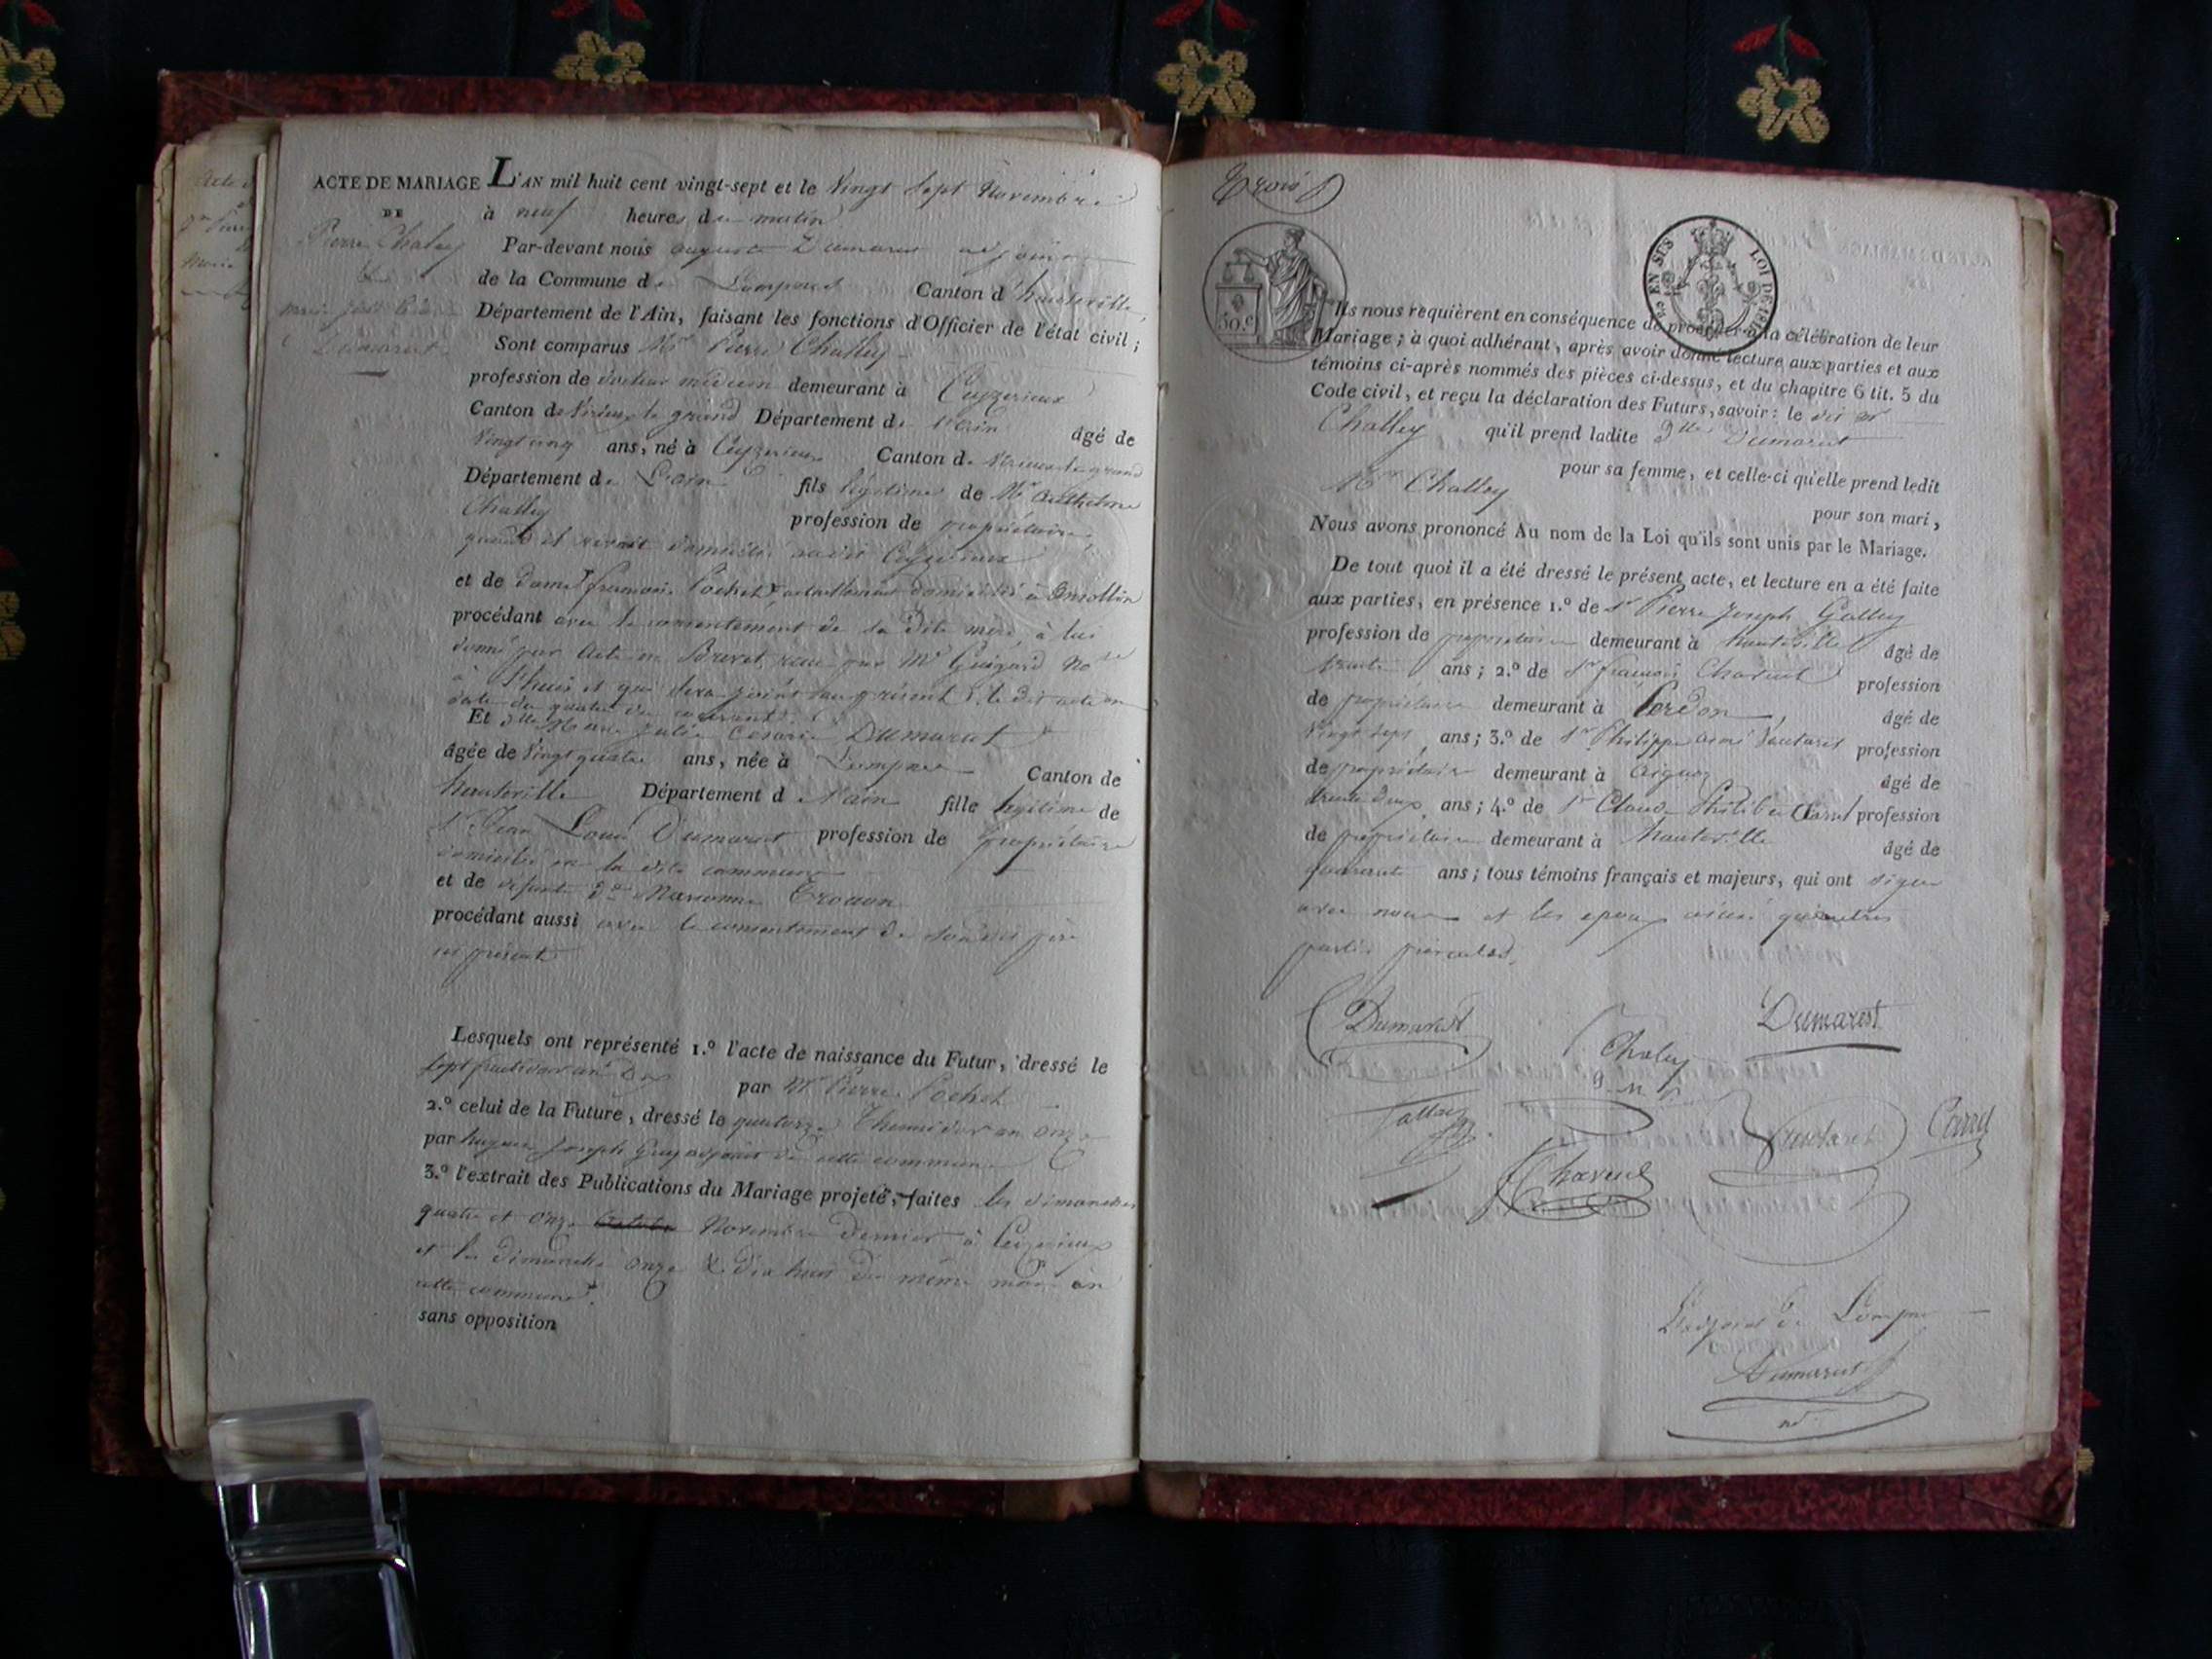 ACTE DE MARIAGE
DE
Pierre Chaley
Et
Dumarest
L'AN mil huit cent vingt-sept et le Vingt Sept Novembre
à neuf heures du matin
Par-devant nous auguste Dumarest adjoint
de la Commune de Lompnes Canton d'hauteville,
Département de l'Ain, faisant les fonctions d'Officier de l'état civil;
Sont comparus Mr Pierre Challey
profession de docteur médecin demeurant à Ceyzerieux
Canton de Virieux le grand Département de l'ain âgé de
Vingt cinq ans, né à Ceyzerieux Canton de Virieux le grand
Département de L'ain fils légitime de Mr Anthelme
Challey profession de propriétaire,
quand il vivait domicilié audit Ceyzerieux
et de dame françoise Pochet actuellement domiciliée à
procédant avec le consentement de sa dite mère, à lui
donné par Acte en Brevet, reçu par Me Guigard
et qui sera joint au présent, le dit acte en
date du quatre du courant.
Et dlle Marie Julie Césarie Dumarest
âgée de Vingt quatre ans, née à Lompnes Canton de
hauteville Département de l'ain fille légitime de
Sr Jean Louis Dumarest profession de propriétaire
domicilié en la dite commune
et de défunte De Marianne
procédant aussi avec le consentement de son dit père
ici présent
Lesquels ont représenté 1.° l'acte de naissance du Futur, dressé le
sept fructidor an Dix par Mr Pierre Pochet
2.° celui de la Future, dressé le quatorze Thermidor an onze
par hugues Joseph Guy adjoint de cette commune
3.° l'extrait des Publications du Mariage projeté, faites les dimanches
quatre et onze Novembre dernier à Ceyzerieux
et les dimanches onze & dix huit du même mois en
cette commune.
sans opposition
Trois
50.c
EN SUS
LOI DE 1816
Ils nous requièrent en conséquence de procéder à la célébration de leur
Mariage; à quoi adhérant, après avoir donné lecture aux parties et aux
témoins ci-après nommés des pièces ci-dessus, et du chapitre 6 tit. 5 du
Code civil, et reçu la déclaration des Futurs, savoir: le dit Mr
Challey qu'il prend ladite Dlle Dumarest
pour sa femme, et celle-ci qu'elle prend ledit
Mr Challey pour son mari,
Nous avons prononcé Au nom de la Loi qu'ils sont unis par le Mariage.
De tout quoi il a été dressé le présent acte, et lecture en a été faite
aux parties, en présence 1.° de Sr Pierre Joseph Galley
profession de propriétaire demeurant à hauteville âgé de
trente ans; 2.° de Sr françois Charvet profession
de propriétaire demeurant à Cerdon, âgé de
Vingt sept ans; 3.° de Sr Philippe Aimé Vautaret profession
de propriétaire demeurant à âgé de
trente deux ans; 4.° de Sr Claude Philibert Carrel profession
de propriétaire demeurant à hauteville âgé de
quarante ans; tous témoins français et majeurs, qui ont signé
avec nous et les époux ainsi que autres
parties présentes.
Dumarest
Chaley
D. M.
Dumarest
Galley
Charvet
Vautaret
Carrel
L'adjoint de Lompnes
Dumarest